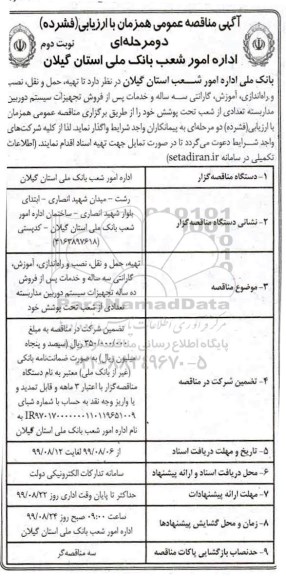 آگهی مناقصه عمومی همزمان با ارزیابی(فشرده)
دومرحله‌ای
نوبت دوم
اداره امور شعب بانک ملی استان گیلان
بانک ملی اداره امور شعب استان گیلان در نظر دارد تا تهیه، حمل و نقل، نصب
و راه‌اندازی، آموزش، گارانتی سه ساله و خدمات پس از فروش تجهیزات سیستم دوربین
مداربسته تعدادی از شعب تحت پوشش خود را از طریق برگزاری مناقصه عمومی همزمان
با ارزیابی(فشرده) دو مرحله‌ای به پیمانکاران واجد شرایط واگذار نماید. لذا از کلیه شرکت‌های
واجد شرایط دعوت می‌گردد تا در صورت تمایل جهت تهیه اسناد اقدام نمایند. (اطلاعات
تکمیلی در سامانه setadiran.ir)
۱- دستگاه مناقصه‌گزار
اداره امور شعب بانک ملی استان گیلان
۲- نشانی دستگاه مناقصه‌گزار
رشت - میدان شهید انصاری - ابتدای
بلوار شهید انصاری - ساختمان اداره امور
شعب بانک ملی استان گیلان - کدپستی
(۴۱۶۳۸۹۷۶۱۸)
۳- موضوع مناقصه
تهیه، حمل و نقل، نصب و راه‌اندازی، آموزش،
گارانتی سه ساله و خدمات پس از فروش
ده ساله تجهیزات سیستم دوربین مداربسته
تعدادی از شعب تحت پوشش خود
۴- تضمین شرکت در مناقصه
تضمین شرکت در مناقصه به مبلغ
۳۵۰/۰۰۰/۰۰۰ ریال (سیصد و پنجاه
میلیون ریال) به صورت ضمانت‌نامه بانکی
(غیر از بانک ملی) معتبر به نام دستگاه
مناقصه‌گزار با اعتبار ۳ ماهه و قابل تمدید و
یا واریز وجه نقد به حساب با شماره شبای
به نام اداره امور شعب بانک ملی استان گیلان
۵- تاریخ و مهلت دریافت اسناد
از ۹۹/۰۸/۰۶ لغایت ۹۹/۰۸/۱۲
۶- محل دریافت اسناد و ارائه پیشنهاد
سامانه تدارکات الکترونیکی دولت
۷- مهلت ارائه پیشنهادات
حداکثر تا پایان وقت اداری روز ۹۹/۰۸/۲۲
۸- زمان و محل گشایش پیشنهادها
ساعت ۰۹:۰۰ صبح روز ۹۹/۰۸/۲۴
اداره امور شعب بانک ملی استان گیلان
۹- حدنصاب بازگشایی پاکات مناقصه
سه مناقصه‌گر